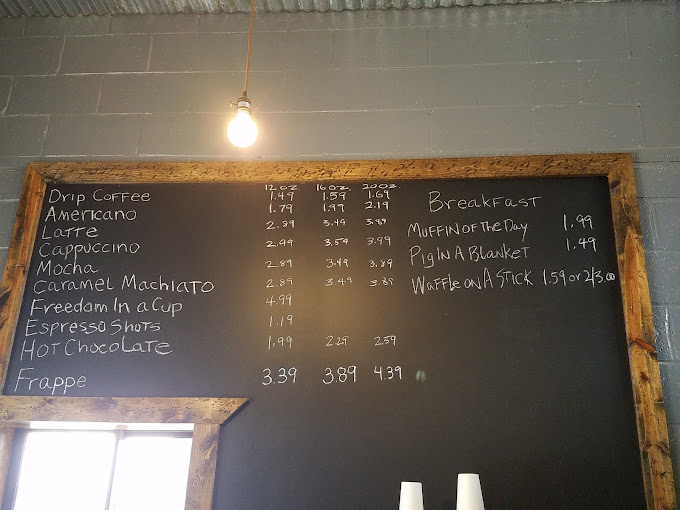 12 oz. 16 oz. 20 oz.
Drip Coffee 1.49 1.59 1.69
Americano 1.79 1.99 2.19
Latte 2.89 3.49 3.89
Cappuccino 2.99 3.59 3.99
Mocha 2.89 3.49 3.89
Caramel Machiato 2.89 3.49 3.89
Freedom In a Cup 4.99
Espresso Shots 1.19
Hot Chocolate 1.99 2.29 2.59
Frappe 3.39 3.89 4.39
Breakfast
Muffin of the Day 1.99
Pig In A Blanket 1.49
Waffle on A Stick 1.59 or 2/3.00